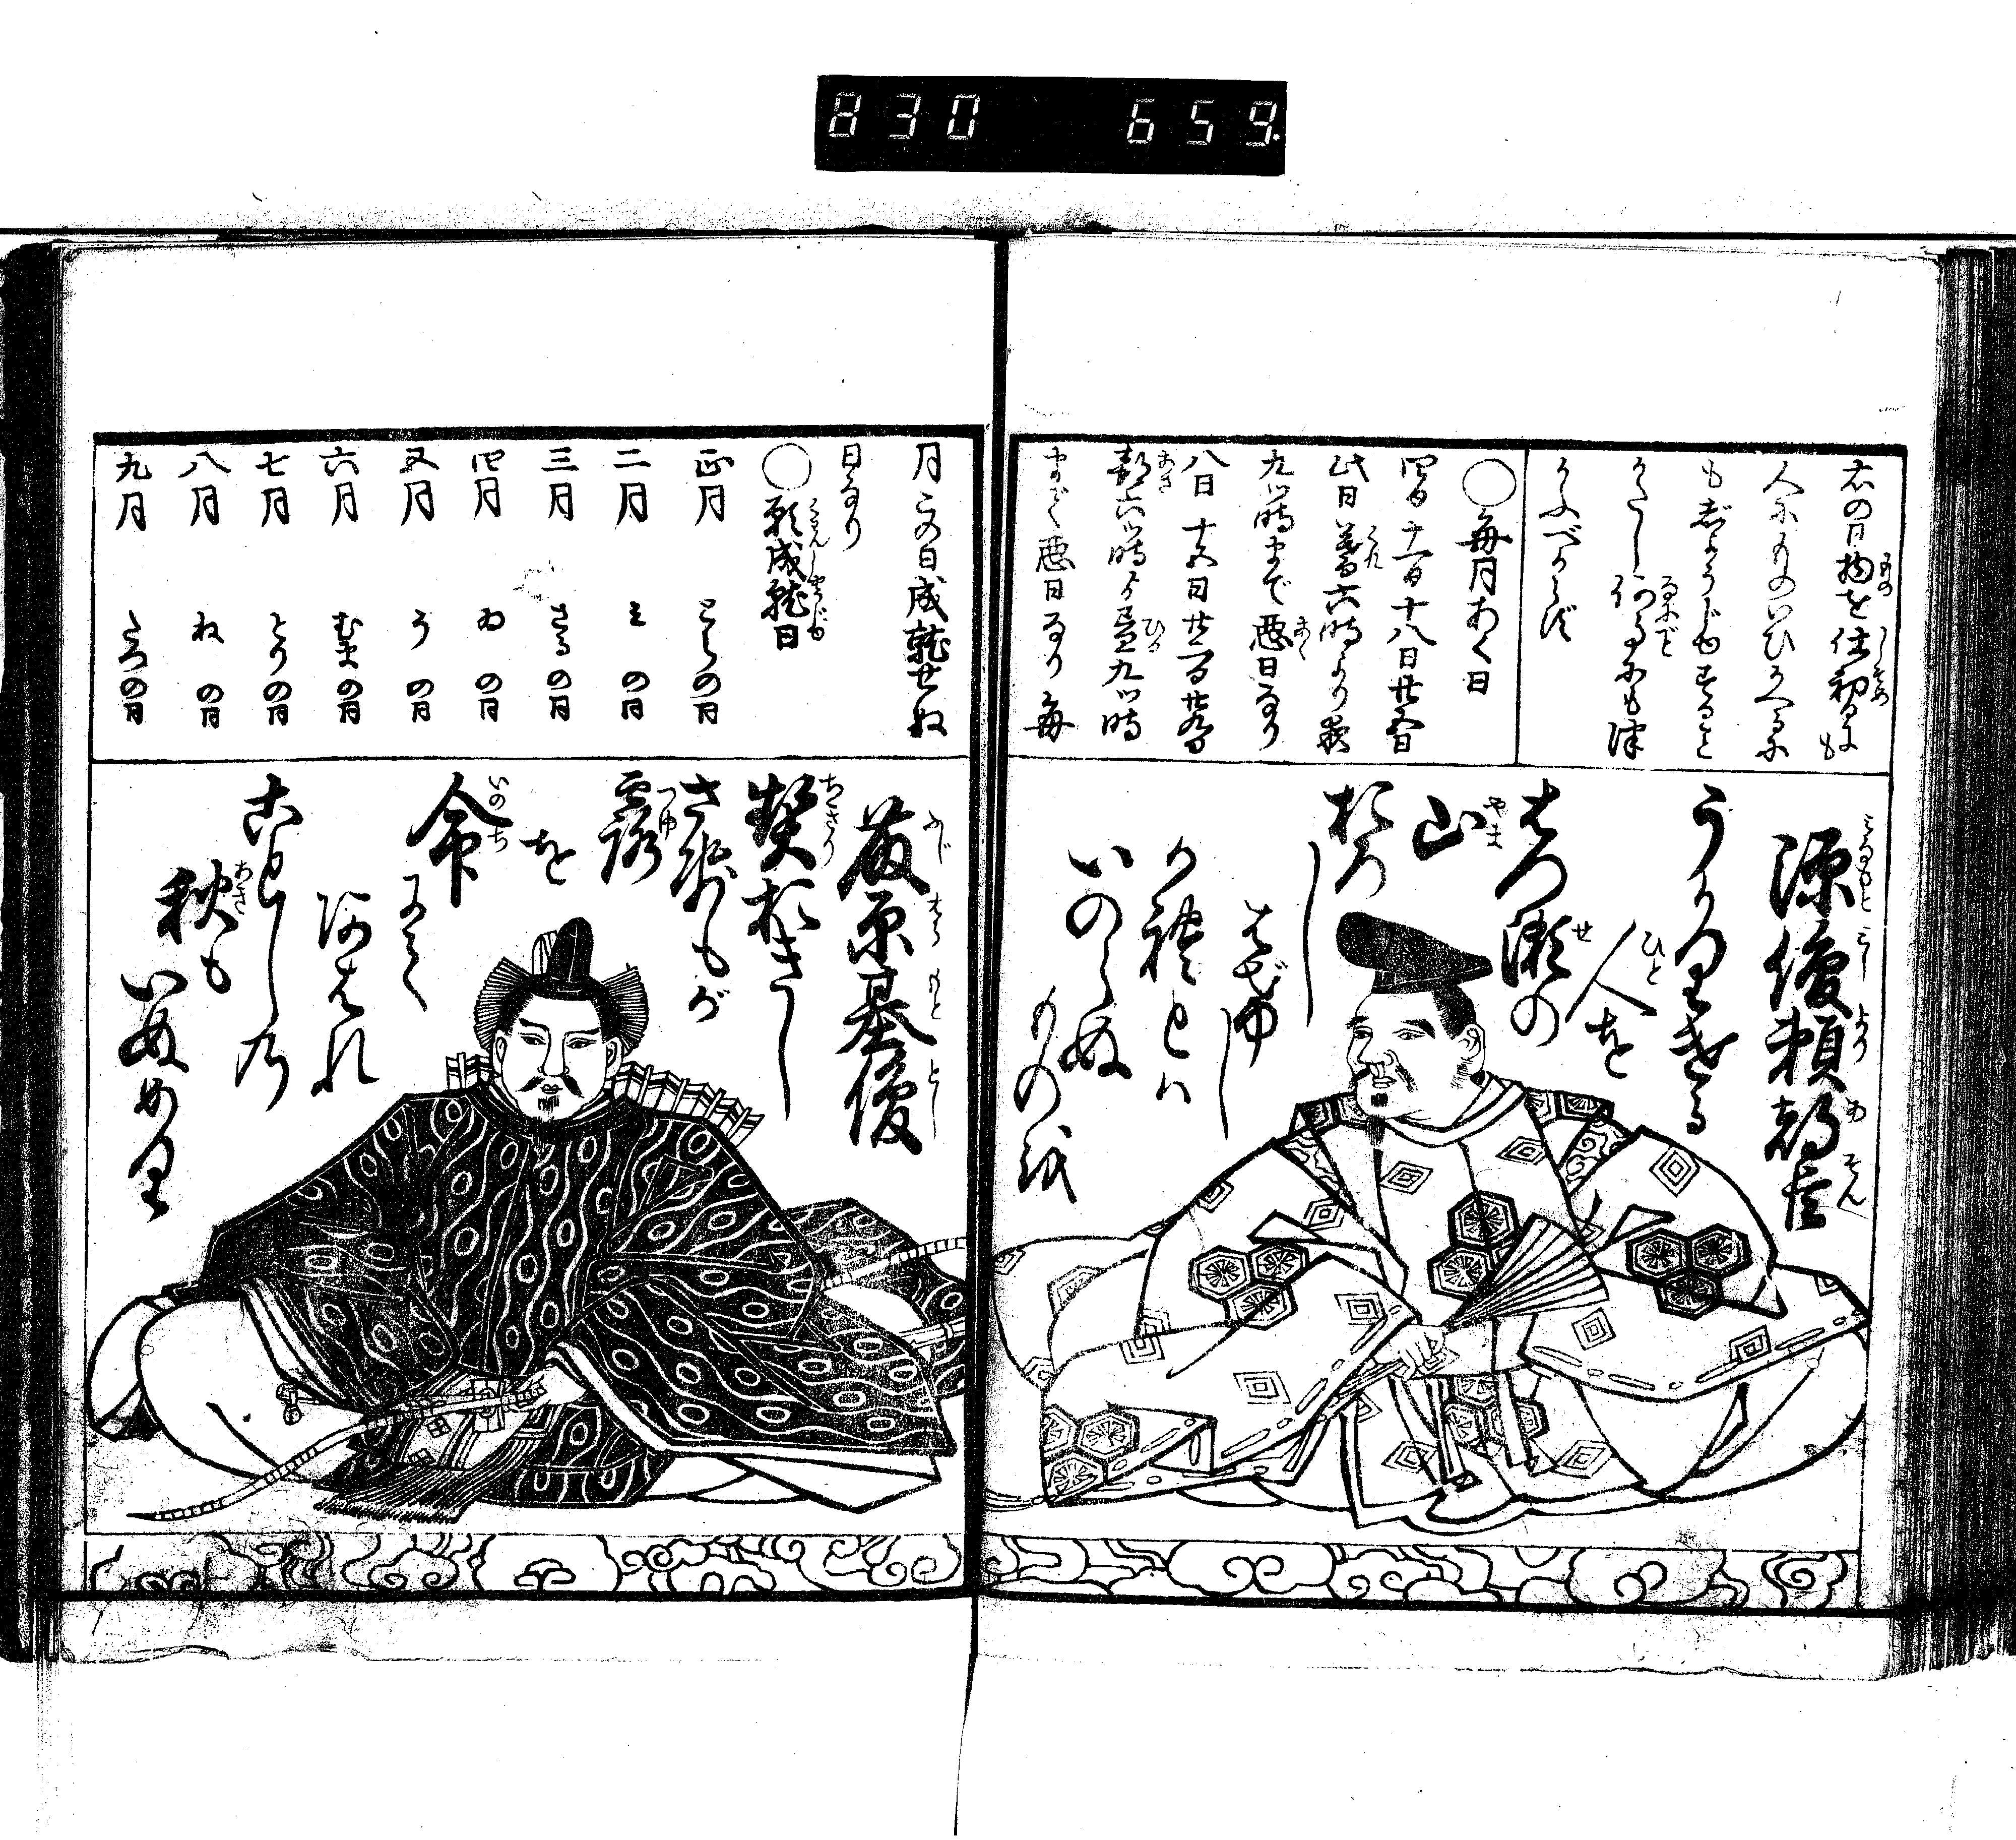 830 659.
右の日物を仕初るにも
人にものいひかへるに
も	しよりおゆすると
かたし何事にも津
かふべからず
○毎月あく日
四日十一日十八日廿五日
此日暮六ツ時より夜
九ツ時まで悪日なり
八日十五日廿二日廿九日
朝六ツ時より昼九ツ時
まで悪日なり毎
源俊頼朝臣
うかりける
人を
はつ瀬の
山
おろし
はげし
かれとは
いのらぬ
ものを
月この日成就せぬ
日なり
○願成就日
正月 とらの日
二月 みの日
三月 さるの日
四月 ゐの日
五月 うの日
六月 むまの日
七月 とりの日
八月 ねの日
九月 たつの日
藤原基俊
契おきし
させもが
露
を
命
にて
あはれ
ことしの
秋も
いぬめり